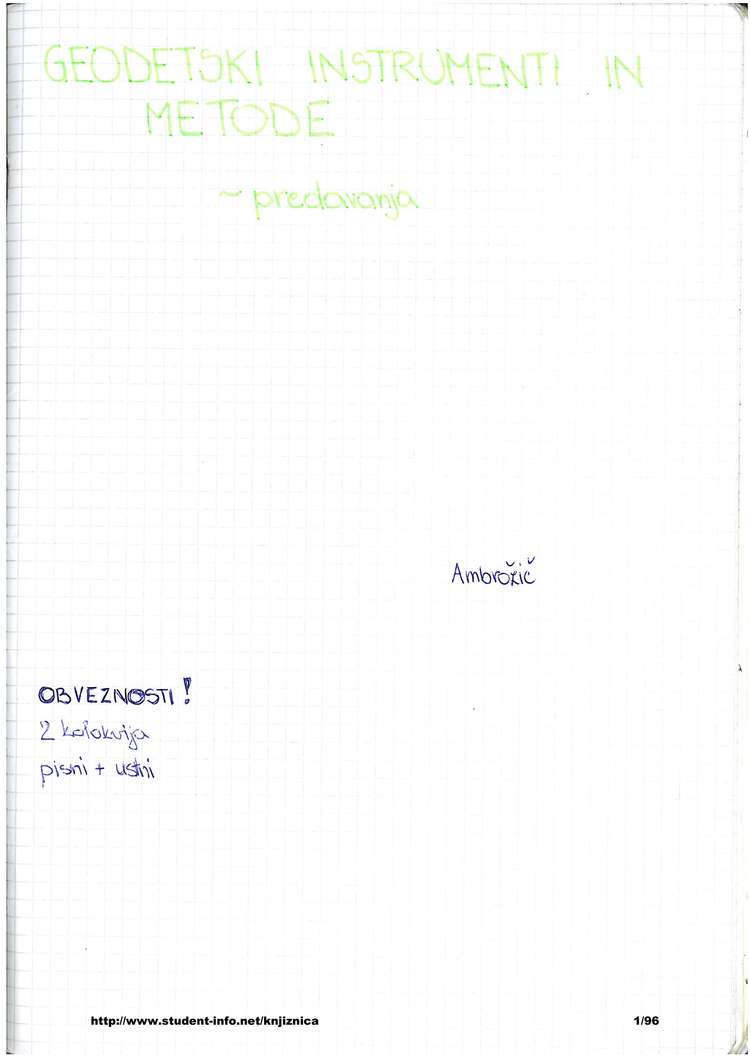 GEODETSKI INSTRUMENTI IN
METODE
~ predavanja
Ambrožič
OBVEZNOSTI!
2 kolokvija
pisni + ustni
http://www.student-info.net/knjiznica 1/96